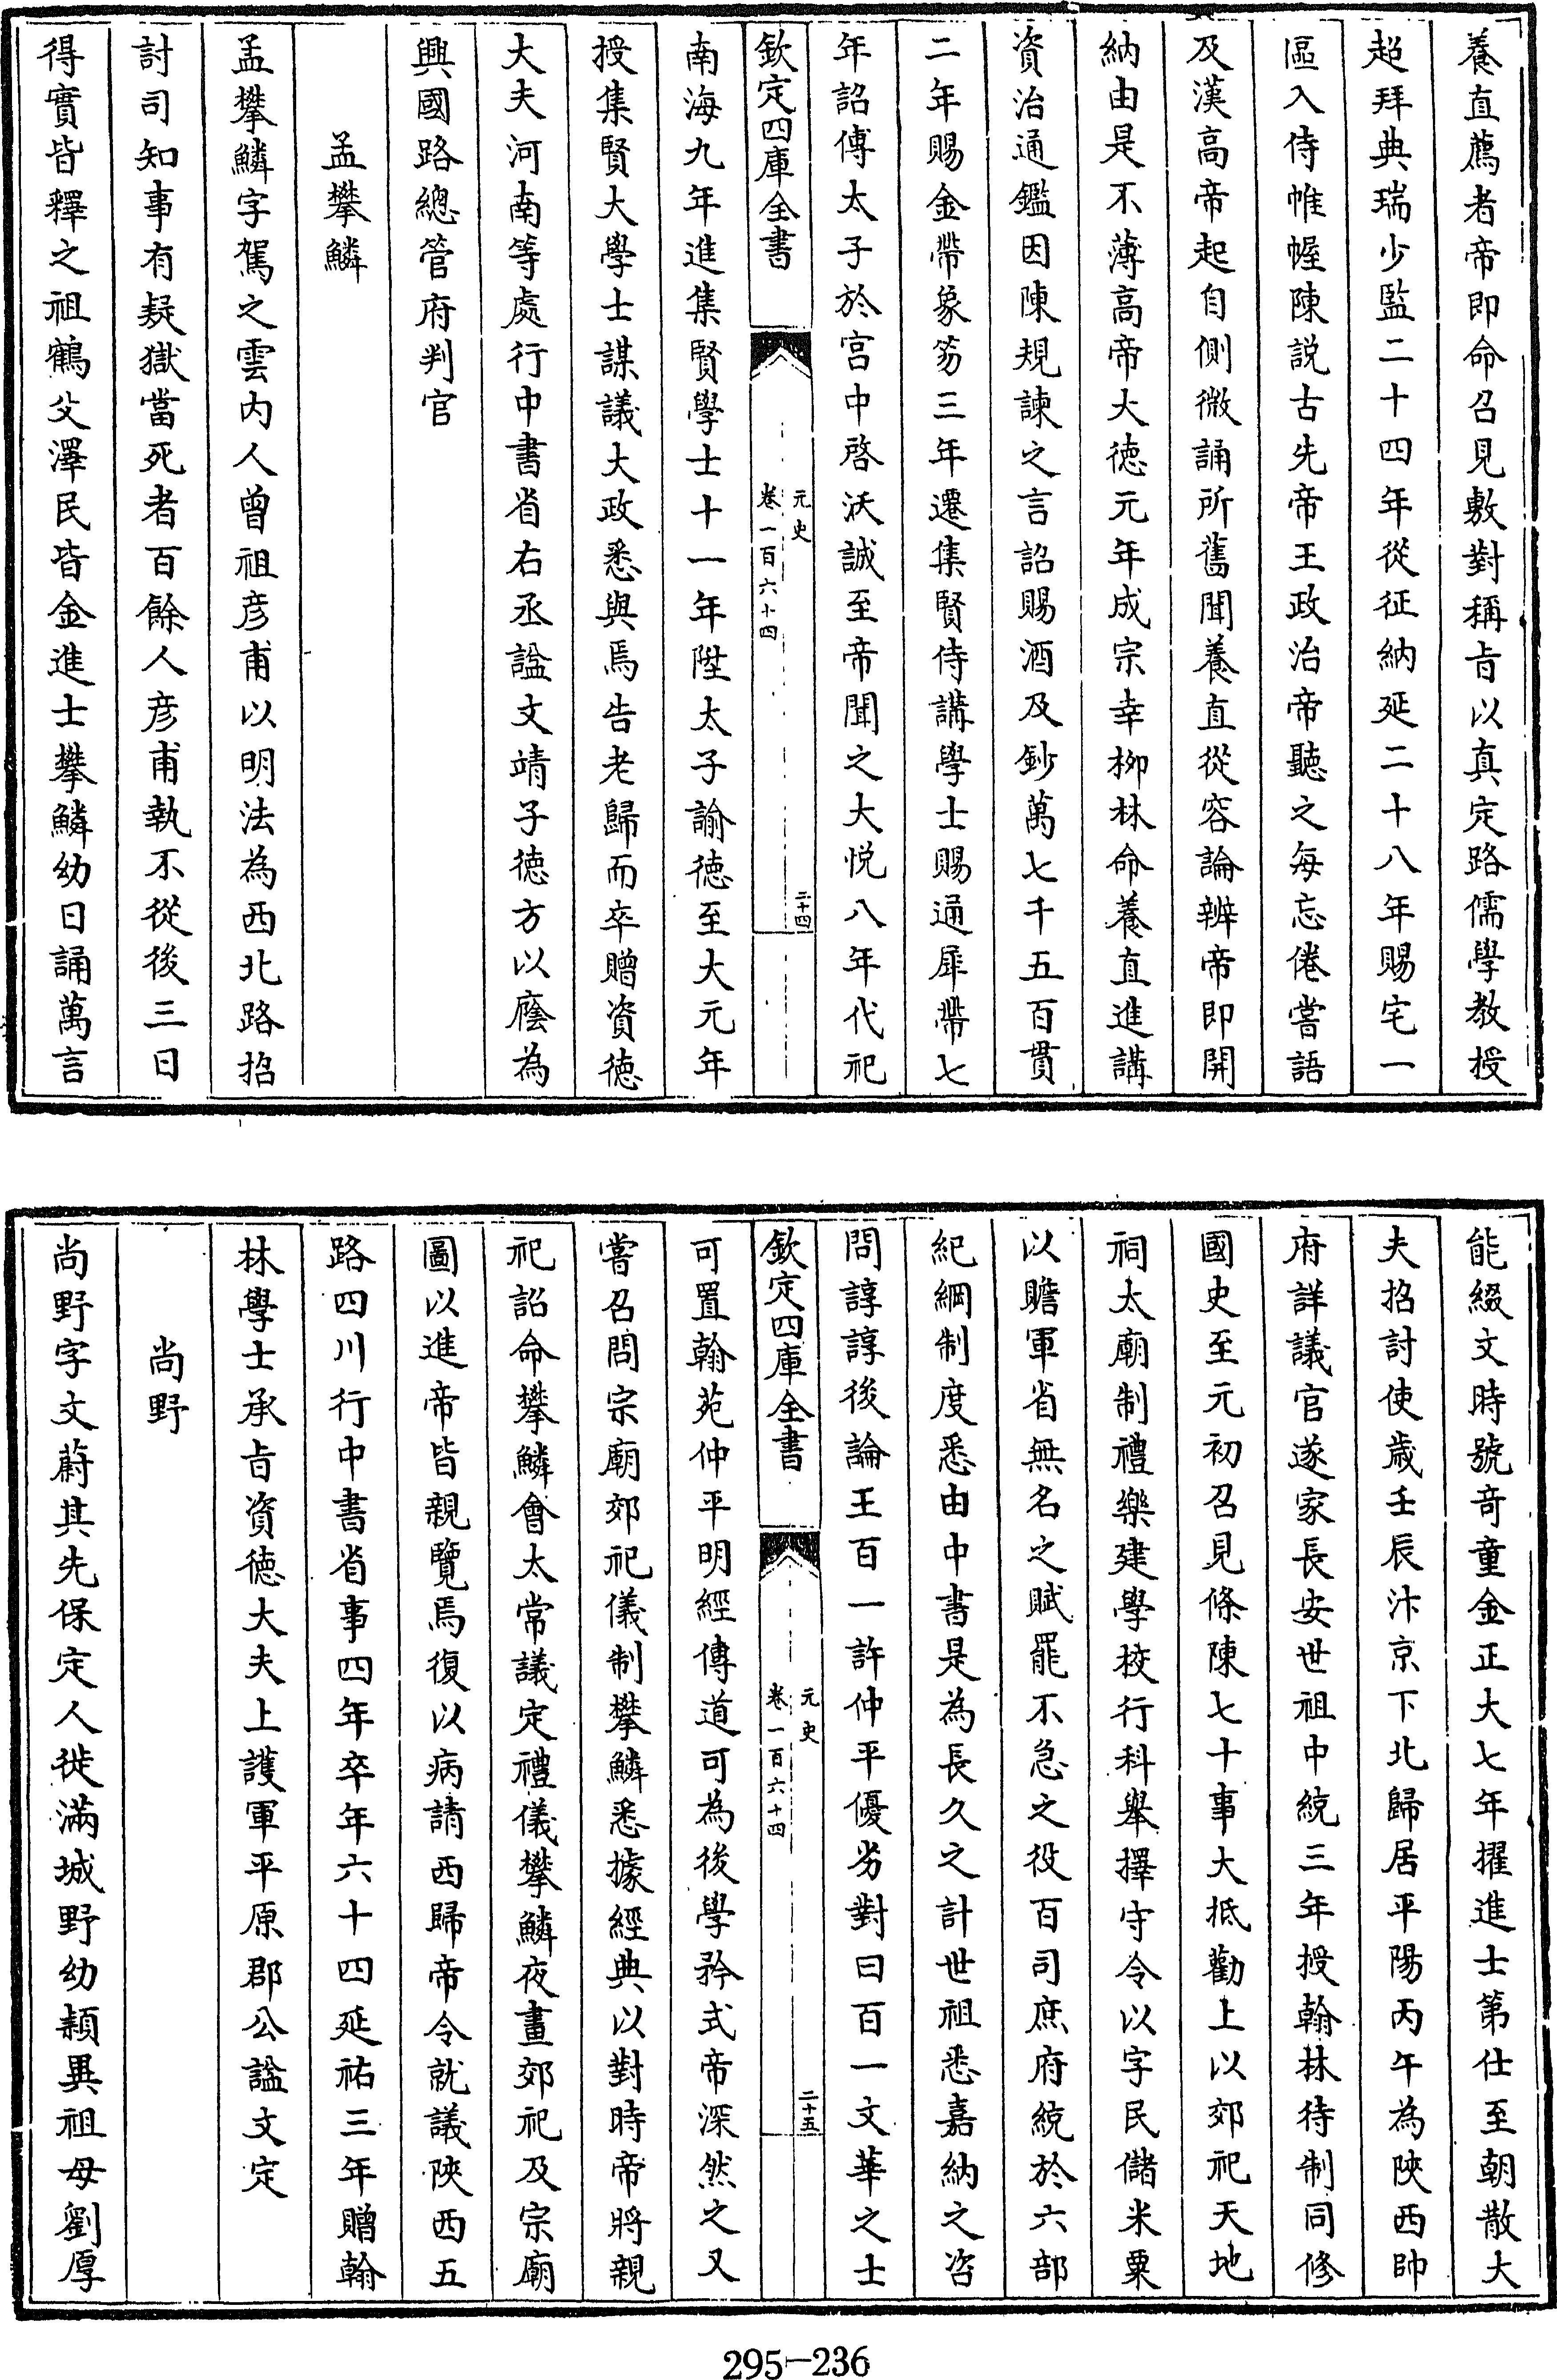 養直薦者帝即命召見敷對稱旨以真定路儒學教授
超拜典瑞少監二十四年從征納延二十八年賜宅一
區入侍帷幄陳説古先帝王政治帝聽之每忘倦嘗語
及漢高帝起自側微誦所舊聞養直從容論辨帝即開
納由是不薄高帝大徳元年成宗幸柳林命養直進講
資治通鑑因陳規諫之言詔賜酒及鈔萬七千五百貫
二年賜金帶象笏三年遷集賢侍講學士賜通犀帶七
年詔傅太子於宫中啓沃誠至帝聞之大悦八年代祀
欽定四庫全書
元史
卷一百六十四
二十四
南海九年進集賢學士十一年陞太子諭徳至大元年
授集賢大學士謀議大政悉與焉告老歸而卒贈資徳
大夫河南等處行中書省右丞諡文靖子徳方以廕為
興國路總管府判官
孟攀鱗
孟攀鱗字駕之雲内人曾祖彦甫以明法為西北路招
討司知事有疑獄當死者百餘人彦甫執不從後三日
得實皆釋之祖鶴父澤民皆金進士攀鱗幼日誦萬言
能綴文時號竒童金正大七年擢進士第仕至朝散大
夫招討使歲壬辰汴京下北歸居平陽丙午為陜西帥
府詳議官遂家長安世祖中統三年授翰林待制同修
國史至元初召見條陳七十事大抵勸上以郊祀天地
祠太廟制禮樂建學校行科舉擇守令以字民儲米粟
以贍軍省無名之賦罷不急之役百司庶府統於六部
紀綱制度悉由中書是為長久之計世祖悉嘉納之咨
問諄諄後論王百一許仲平優劣對曰百一文華之士
欽定四庫全書
元史
卷一百六十四
二十五
可置翰苑仲平明經傳道可為後學矜式帝深然之又
嘗召問宗廟郊祀儀制攀鱗悉據經典以對時帝將親
祀詔命攀鱗會太常議定禮儀攀鱗夜畫郊祀及宗廟
圖以進帝皆親覽焉復以病請西歸帝令就議陜西五
路四川行中書省事四年卒年六十四延祐三年贈翰
林學士承旨資徳大夫上護軍平原郡公諡文定
尚野
尚野字文蔚其先保定人徙滿城野幼穎異祖母劉厚
295-236